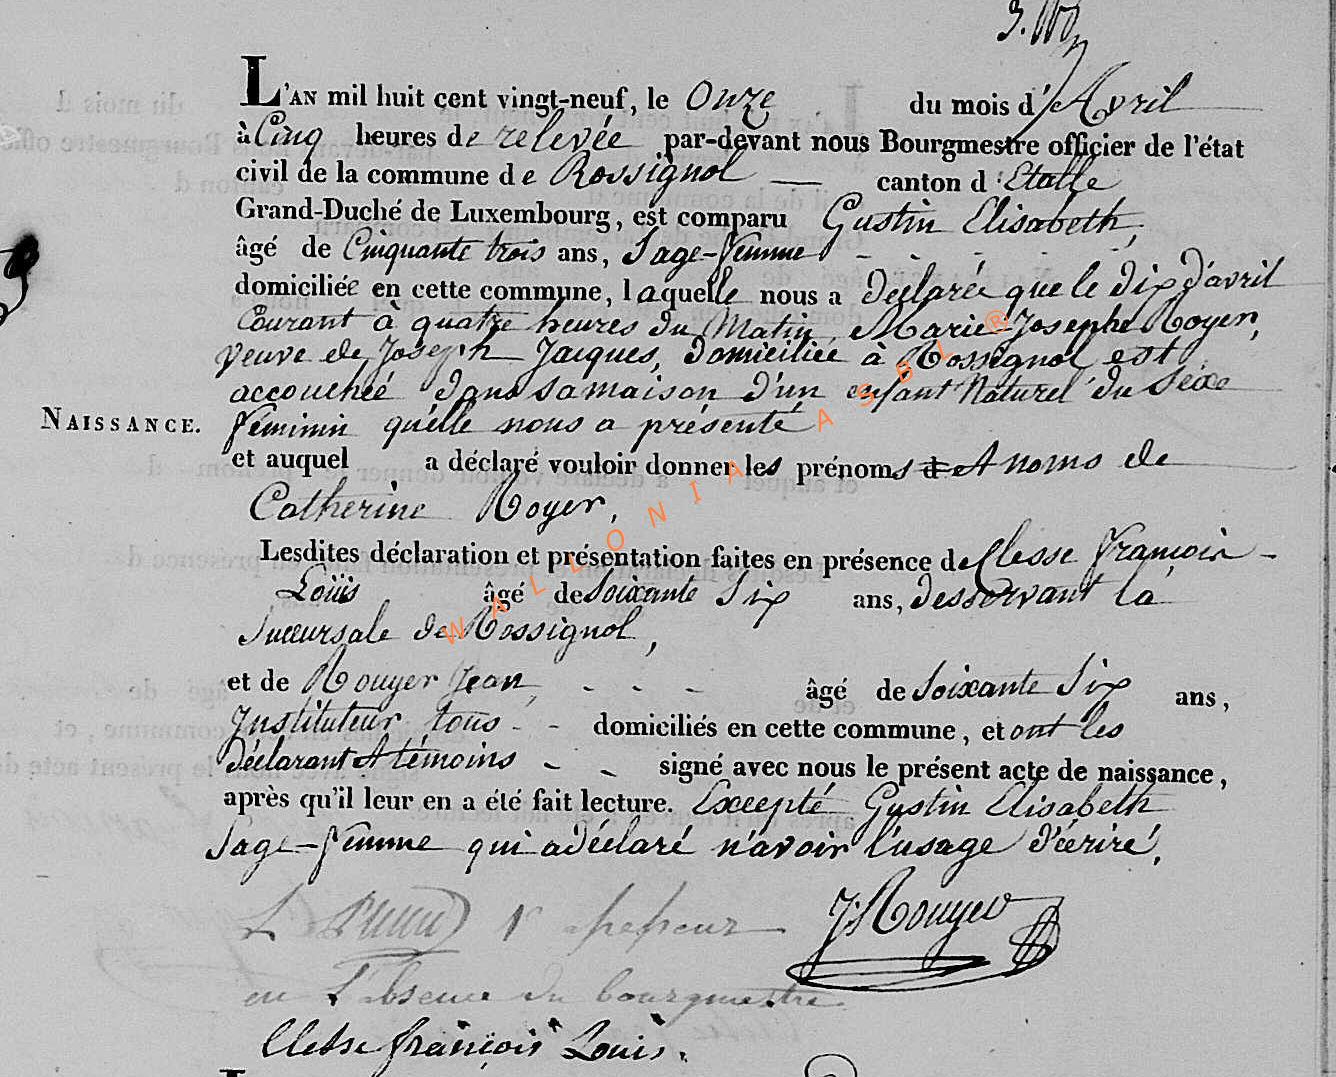 L'AN mil huit cent vingt-neuf, le Onze du mois d'Avril
à Cinq heures de relevée par-devant nous Bourgmestre officier de l'état
civil de la commune de Rossignol canton d'Etalle
Grand-Duché de Luxembourg, est comparu Gustin Elisabeth,
âgé de Cinquante trois ans, Sage-femme
domiciliée en cette commune, laquelle nous a déclarée que le dix d'avril
Courant à quatre heures du Matin, Marie Josephe Royer,
veuve de Joseph Jacques, domiciliée à Rossignol est
accouchée dans sa maison d'un enfant Naturel du Sexe
NAISSANCE. féminin qu'elle nous a présenté
et auquel a déclaré vouloir donner les prénoms et noms de
Catherine Royer,
Lesdites déclaration et présentation faites en présence de Clesse françois
Loüis âgé de Soixante Six ans, desservant la
Succursale de Rossignol,
et de Rouyer Jean, âgé de Soixante Six ans,
Instituteur tous domiciliés en cette commune, et ont les
déclarant et témoins signé avec nous le présent acte de naissance,
après qu'il leur en a été fait lecture. Excepté Gustin Elisabeth
Sage-femme qui a déclaré n'avoir l'usage d'écrire,
assesseur J: Rouyer
en l'absence du bourgmestre
Clesse françois Louis.
WALLONIA ASBL ®